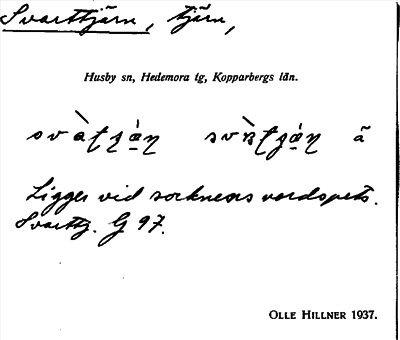 Svarttjärn, tjärn,
Husby sn, Hedemora tg, Kopparbergs län.
Ligger vid socknens nordspets.
Svarttj. G 97.
OLLE HILLNER 1937.